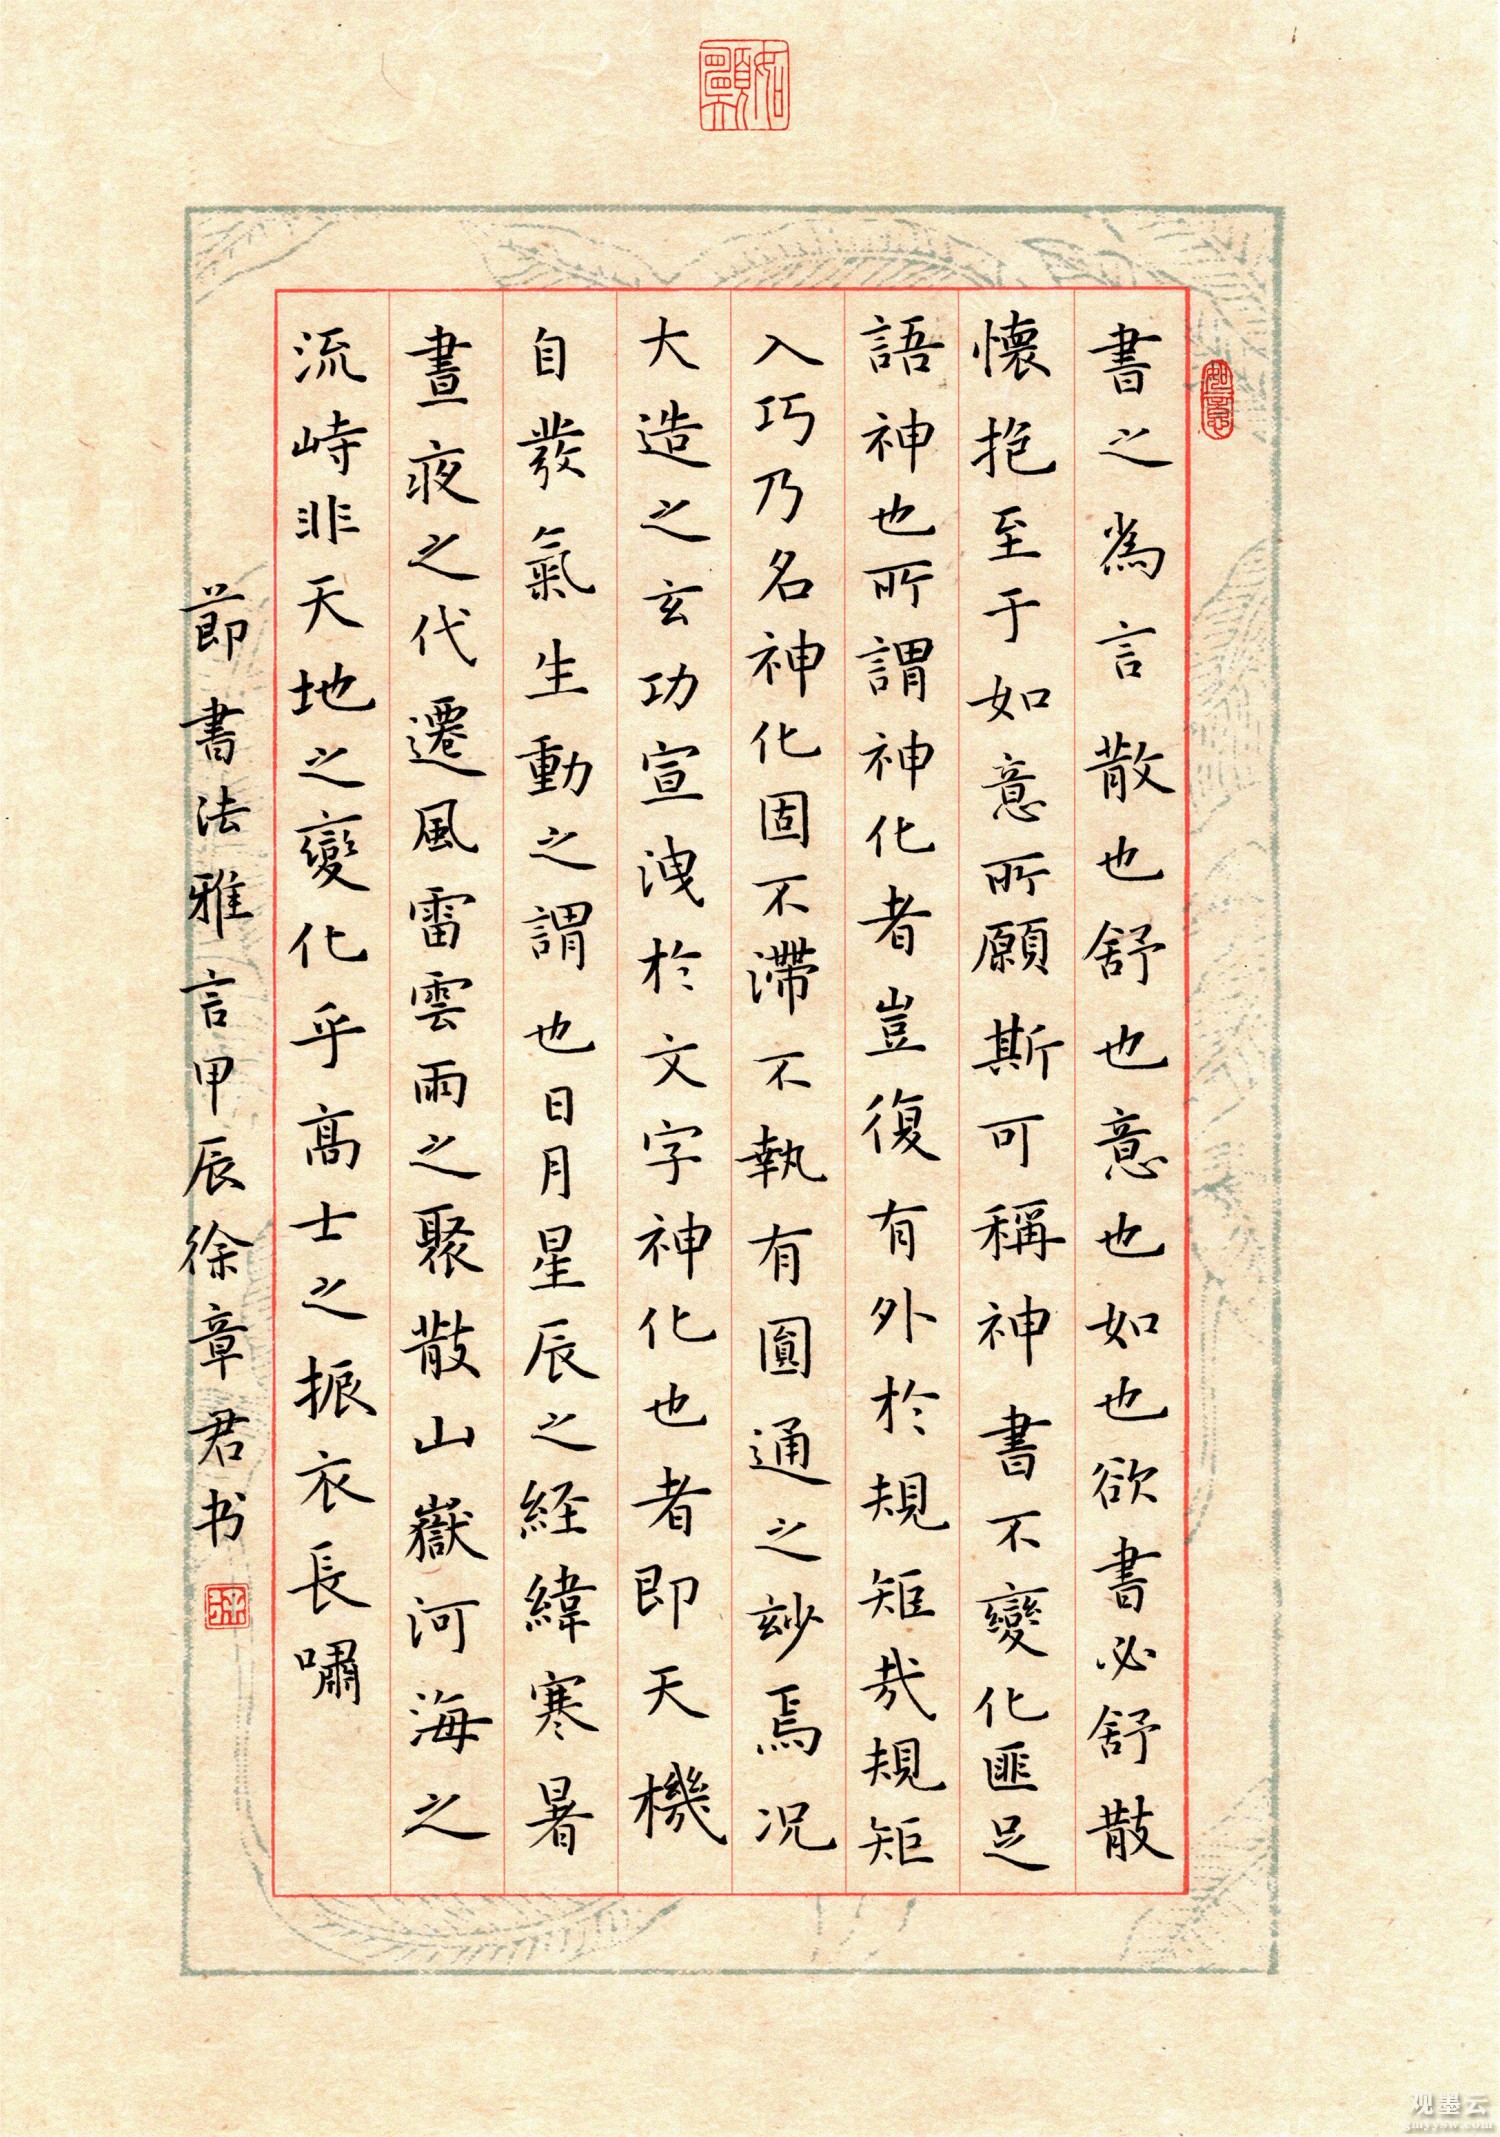 書之為言散也舒也意也如也欲書必舒散
懷抱至于如意所願斯可稱神書不變化匪足
語神也所謂神化者豈復有外於規矩哉規矩
入巧乃名神化固不滯不執有圓通之妙焉況
大造之玄功宣洩於文字神化也者即天機
自發氣生動之謂也日月星辰之経緯寒暑
晝夜之代遷風雷雲雨之聚散山嶽河海之
流峙非天地之變化乎高士之振衣長嘯
節書法雅言甲辰徐章君书
如意
观墨云